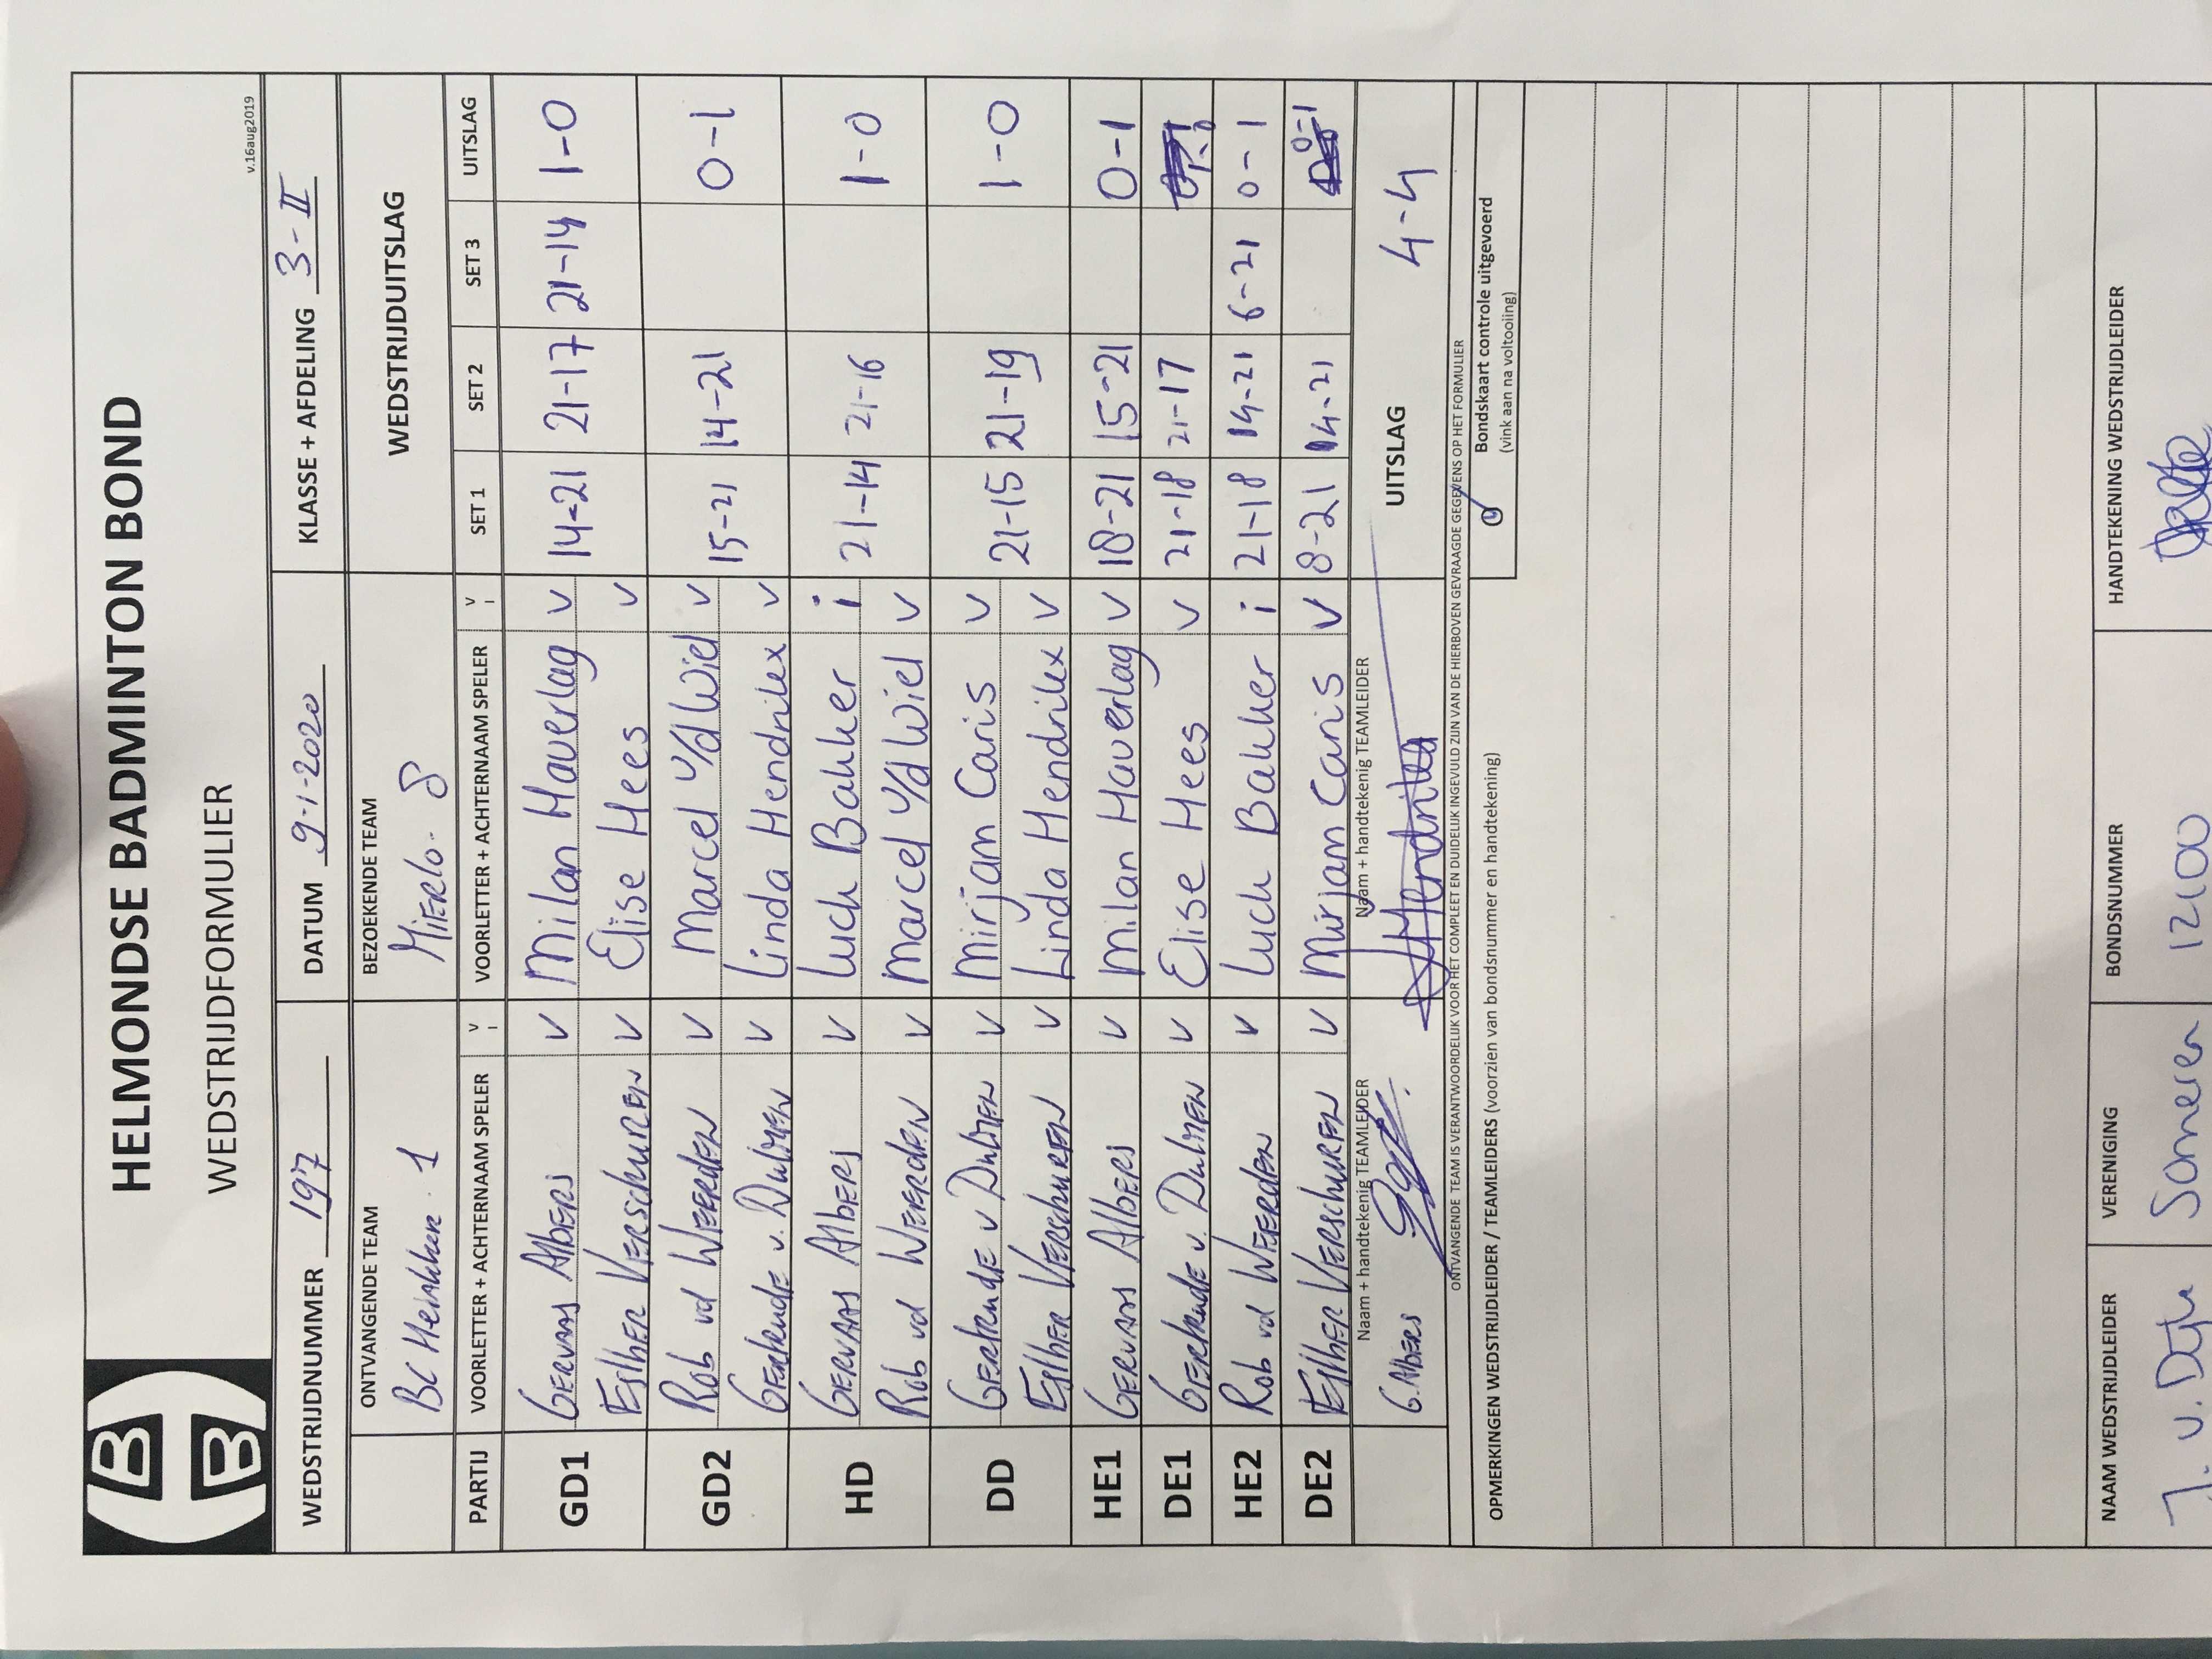 HELMONDSE BADMINTON BOND
WEDSTRIJDFORMULIER
v.16aug2019
WEDSTRIJDNUMMER 197 DATUM 9-1-2020 KLASSE + AFDELING 3-II
ONTVANGENDE TEAM BEZOEKENDE TEAM WEDSTRIJDUITSLAG
BC 1 MIERLO - 8
PARTIJ VOORLETTER + ACHTERNAAM SPELER V I VOORLETTER + ACHTERNAAM SPELER V I SET 1 SET 2 SET 3 UITSLAG
GD1 GERVAAS AlbERS V Milan Haverlag V 14-21 21-17 21-14 1-0
EstHER VERSchuREN V Elise Hees V
GD2 Rob vd WEERdEN V Marcel v/d Wiel V 15-21 14-21 0-1
GERtrudE v. DulMEN V Linda Hendrikx V
HD GERVAAS AlbERS V Luck Bakker i 21-14 21-16 1-0
Rob vd WEERdEN V Marcel v/d Wiel V
DD GERtrudE v DulMEN V Mirjam Caris V 21-15 21-19 1-0
EstHER VERSchuREN V Linda Hendrikx V
HE1 GERVAAS AlbERS V Milan Haverlag V 18-21 15-21 0-1
DE1 GERtrudE v. DulMEN V Elise Hees V 21-18 21-17 1-0
HE2 Rob vd WEERdEN V Luck Bakker i 21-18 14-21 6-21 0-1
DE2 EstHER VERSchuREN V Mirjam Caris V 8-21 14-21 0-1
Naam + handtekenig TEAMLEIDER Naam + handtekenig TEAMLEIDER UITSLAG 4-4
G. AlbERS Hendrikx
ONTVANGENDE TEAM IS VERANTWOORDELIJK VOOR HET COMPLEET EN DUIDELIJK INGEVULD ZIJN VAN DE HIERBOVEN GEVRAAGDE GEGEVENS OP HET FORMULIER
OPMERKINGEN WEDSTRIJDLEIDER / TEAMLEIDERS (voorzien van bondsnummer en handtekening)
Bondskaart controle uitgevoerd
(vink aan na voltooiing)
NAAM WEDSTRIJDLEIDER VERENIGING BONDSNUMMER HANDTEKENING WEDSTRIJDLEIDER
J. v. Dijk Someren 12100